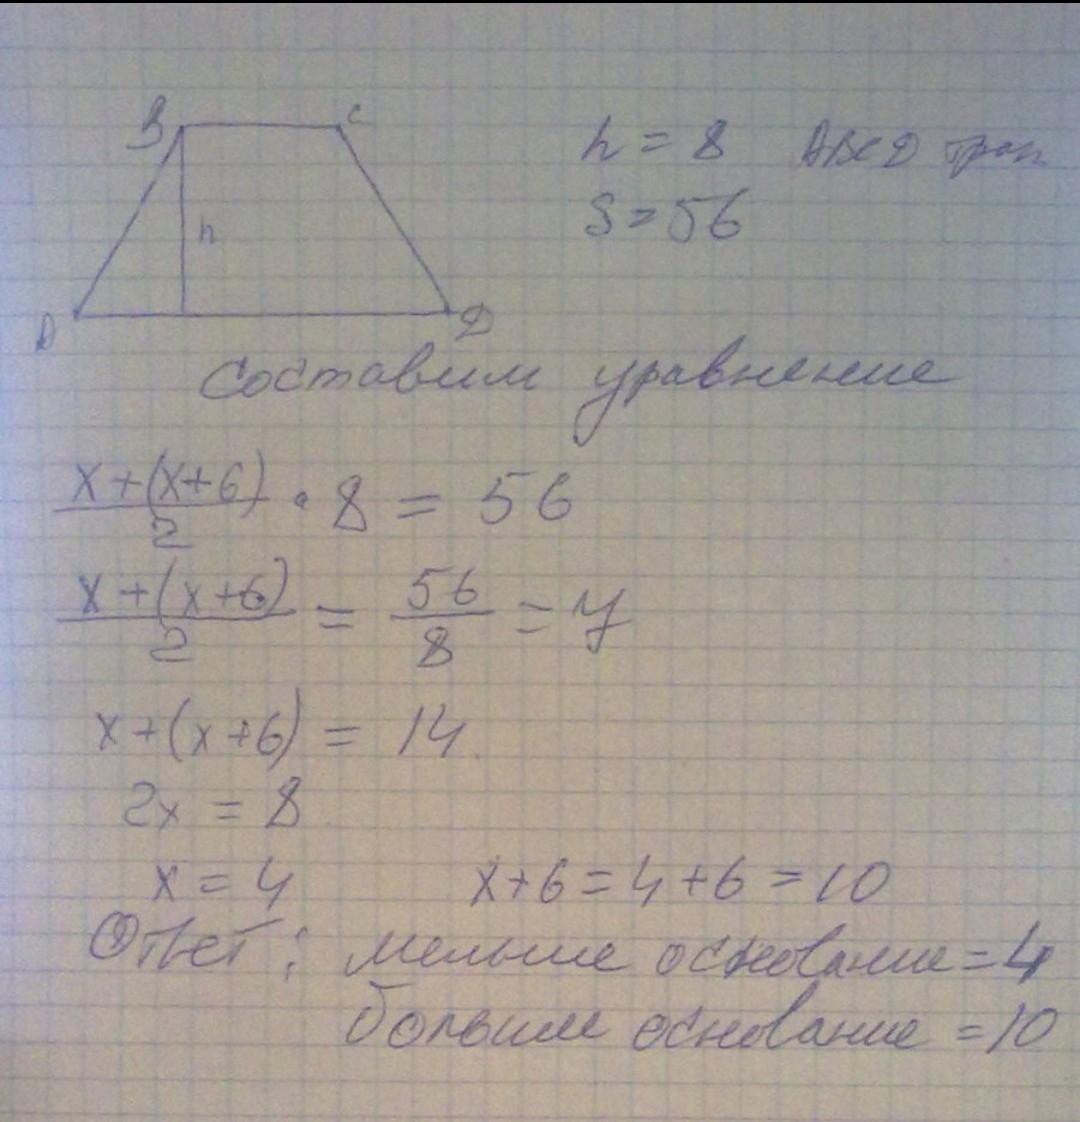 B C
h = 8 ABCD трап
S = 56
h
D D
Составим уравнение
x+(x+6)/2 · 8 = 56
x+(x+6)/2 = 56/8 = 7
x+(x+6) = 14
2x = 8
x = 4 x+6 = 4+6 = 10
Ответ: меньше основание = 4
больше основание = 10